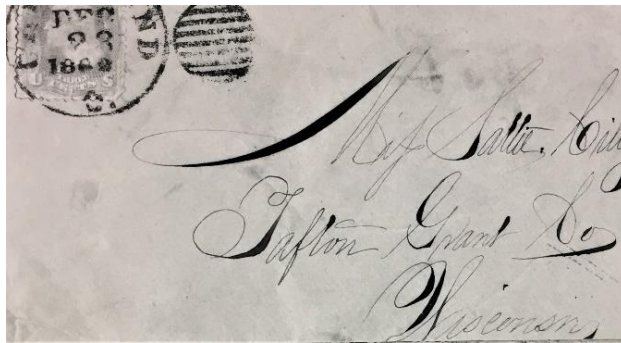 DEC
23
186
O.
U S
Miss Sallie
Tafton Grant Co
Wisconsin,